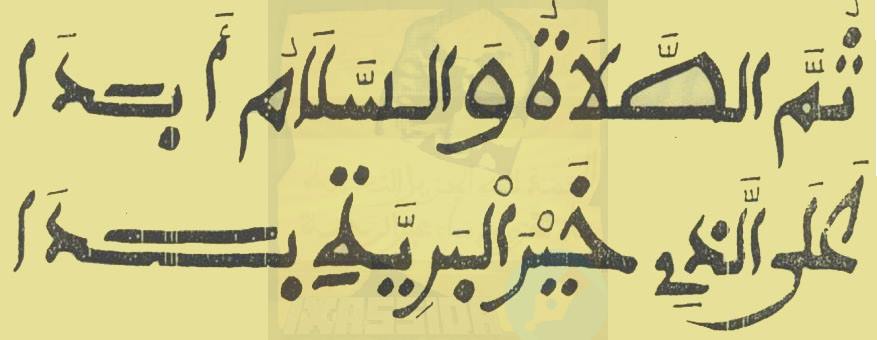 ثُمَّ الصَّلَاةُ وَالسَّلَامُ أَبَدَا
عَلَى الَّذِي خَيْرَ الْبَرِيَّةِ بَدَا
XASSIDA